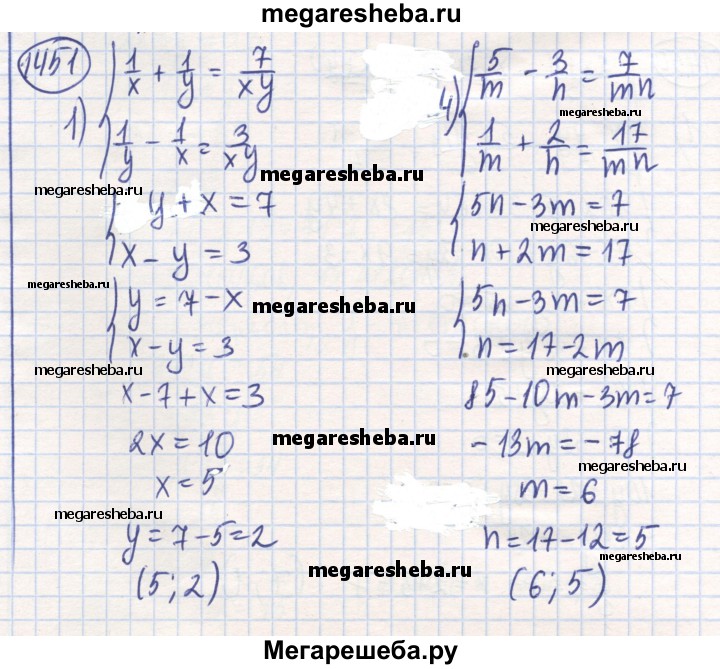 megaresheba.ru
1451
1) { 1/x + 1/y = 7/xy
1/y - 1/x = 3/xy
megaresheba.ru
megaresheba.ru
{ y + x = 7
x - y = 3
{ y = 7 - x
megaresheba.ru
x - y = 3
megaresheba.ru
x - 7 + x = 3
2x = 10
megaresheba.ru
x = 5
megaresheba.ru
y = 7 - 5 = 2
megaresheba.ru
(5; 2)
4) { 5/m - 3/n = 7/mn
megaresheba.ru
1/m + 2/n = 17/mn
{ 5n - 3m = 7
megaresheba.ru
n + 2m = 17
{ 5n - 3m = 7
n = 17 - 2m
megaresheba.ru
85 - 10m - 3m = 7
- 13m = - 78
megaresheba.ru
m = 6
n = 17 - 12 = 5
megaresheba.ru
(6; 5)
Мегарешеба.ру